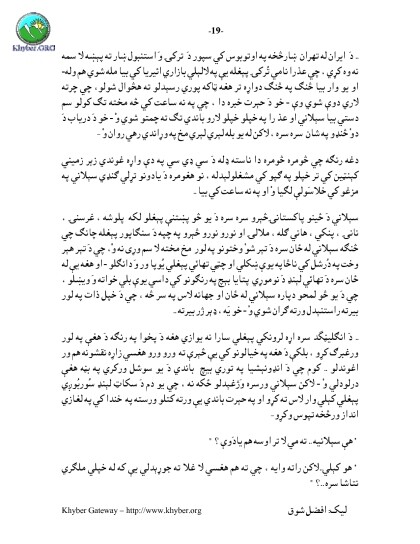 -19-
Khyber.ORG
.. دَ ايران له تهران ښار څخه په اوتوبوس کي سپور دَ ترکۍ وَ استنبول ښار ته پېښه لا سمه
نه وه کړې ، چي عذرا نامي تُرکۍ پېغلې يې په لالېلي بازاري اتيريا کي بيا مله شوې هم وله-
او يو وار بيا څنګ په څنګ دواړه تر هغه ټاکه پورې رسېدلو ته هڅوال شولو ، چي چرته
لارې دوې شوې وې - خو دَ حيرت خبره دا ، چي په نه ساعت کي څه مخته تګ کولو سم
دستي بيا سېلاني او عذ را په خپلو خپلو لارو باندي تګ ته چمتو شوي وُ - خو دَ درياب دَ
دوُ څنډو په شان سره سره ، لاکن له يو بله لېرې لېرې مخ په وړاندي رهي روان وُ -
دغه رنګه چي څومره څومره دا ناسته ډله دَ سي ډي سي په دې واړه غوندې زېر زميني
کېنټين کي تر خپلو په ګپو کي مشغلولېدله ، نو هغومره دَ يادونو ترلې ګنډې سېلاني په
مزغو کي خلاسولې لګيا وُ او په نه ساعت کي بيا ..
سېلاني دَ ځينو پاکستانۍ څېرو سره سره دَ يو څو پښتنې پېغلو لکه پلوشه ، غرسنۍ ،
نانۍ ، پنکۍ ، هانۍ ګله ، ملالۍ او نورو نورو څېرو په چپه دَ سنګاپور پېغله چانګ چي
څنګه سېلاني له ځان سره دَ تېر شوُ وختونو په لور مخ مخته لا سم وړی نه وُ، چي دَ تېر هېر
وخت په دُرشل کي ناڅاپه يوې ښکلې او چټي تهائۍ پېغلي يُوپا ور وَدانګلو - او هغه يې له
ځان سره دَ تهائي لېنډ دَ نومورې پتايا بېچ په رنګونو کي داسي يوې بلي خوا ته وَوېښلو ،
چي دَ يو څو لمحو دپاره سېلاني له ځان او جهانه لاس په سر څه ، چي دَ خپل ذات په لور
بېرته راستنېدل ورته ګران شوي وُ - خو يَه ، ډېر ژر بېرته..
.. دَ انګلېټګد سره اړه لرونکې پېغلي سارا نه يوازي هغه دَ پخوا په رنګه دَ هغې په لور
ورغبرګ کړو ، بلکې دَ هغه په خيالونو کي يې څېرې ته ورو ورو هغسې زاړه نقشونه هم ور
اغوندلو .. کوم چي دَ انډونېشيا په توري بېچ باندي دَ يو سوشل ورکري په بڼه هغې
درلودلې وُ - لاکن سېلاني ورسره وَرغېدلو څکه نه ، چي يو دم دَ سکاټ لېنډ سُوربُورې
پېغلي کېلي وار لاس ته کړو او په حيرت باندي يې ورته کتلو ورسته په خندا کي په لغازي
انداز ورڅخه تپوس وکړو-
" هې سېلانيه.. ته مي لا تر اوسه هم يادَوې ؟ "
" هو کېلي، لاکن راته وايه ، چي ته هم هغسې لا غلا ته جوړېدلې يې که له خپلي ملګرې
نتاشا سره ..؟ "
Khyber Gateway – http://www.khyber.org
ليک: افضل شوق